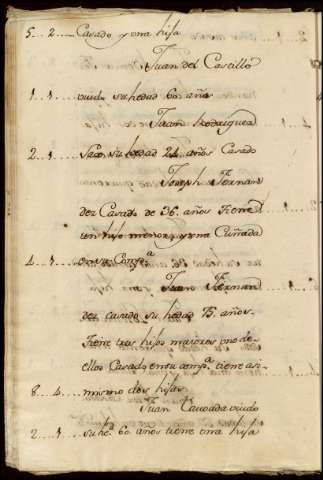 5..2.... Casado y una hija
Juan del Castillo
1..1.... viudo su hedad 60 años
Juan Rodriguez
2..1.... su hedad 24 años Casado
Joseph Fernan
dez Casado de 36. años tiene
un hijo menor, y una Cuñada
4..1.... en su Comp.ª
Juan Fernan
dez casado su hedad 75. años.
tiene tres hijos maiores uno de
ellos Casado en su comp.ª tiene asi
8..4.... mismo dos hijas
Juan Taboada viudo
2..1.... su hd. 60 años tiene una hija